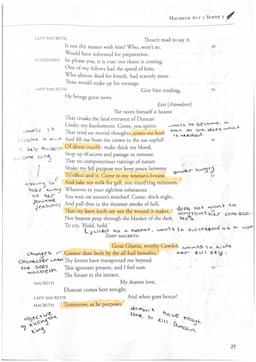 MACBETH ACT 1 SCENE 5
LADY MACBETH Thou'rt mad to say it.
Is not thy master with him? Who, were't so,
Would have informed for preparation.
ATTENDANT So please you, it is true: our thane is coming.
One of my fellows had the speed of him;
Who almost dead for breath, had scarcely more
Than would make up his message.
LADY MACBETH Give him tending,
He brings great news.
Exit [Attendant]
The raven himself is hoarse
That croaks the fatal entrance of Duncan
Under my battlements. Come, you spirits
That tend on mortal thoughts, unsex me here
And fill me from the crown to the toe topfull
Of direst cruelty; make thick my blood,
Stop up th'access and passage to remorse
That no compunctious visitings of nature
Shake my fell purpose nor keep peace between
Th'effect and it. Come to my woman's breasts
And take my milk for gall, you murd'ring ministers,
Wherever in your sightless substances
You wait on nature's mischief. Come, thick night,
And pall thee in the dunnest smoke of hell,
That my keen knife see not the wound it makes,
Nor heaven peep through the blanket of the dark,
To cry, 'Hold, hold.'
Enter MACBETH
Great Glamis, worthy Cawdor,
Greater than both by the all-hail hereafter,
Thy letters have transported me beyond
This ignorant present, and I feel now
The future in the instant.
MACBETH My dearest love,
Duncan comes here tonight.
LADY MACBETH And when goes hence?
MACBETH Tomorrow, as he purposes.
wants to become a
man so she does what
is needed
wants to
become king
power hungry
asking to
take away
her
feminine
features
does not want to
used as a
wants to hide
her evil
changes
character when
she sees
macbeth
doesn't
have enough
time to kill Duncan
objective
of killing the
king
25